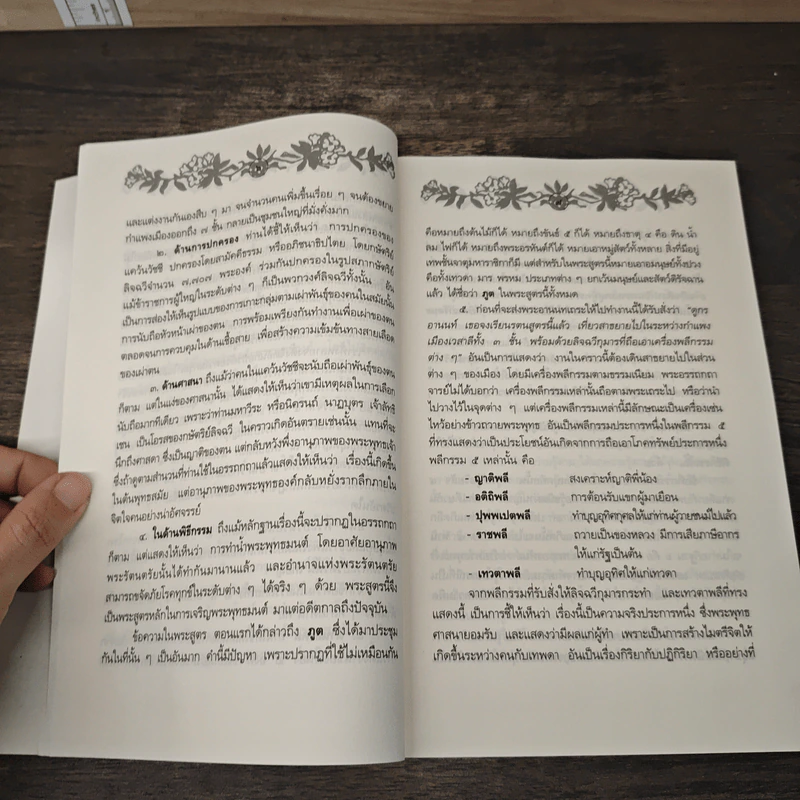 และแต่งงานกันเองสืบ ๆ มา จนจำนวนคนเพิ่มขึ้นเรื่อย ๆ จนต้องขยาย
กำแพงเมืองออกถึง ๗ ชั้น กลายเป็นชุมชนใหญ่ที่มั่งคั่งมาก
๒. ด้านการปกครอง ท่านได้ชี้ให้เห็นว่า การปกครองของ
แคว้นวัชชี ปกครองโดยสามัคคีธรรม หรืออภิชนาธิปไตย โดยกษัตริย์
ลิจฉวีจำนวน ๗,๗๐๗ พระองค์ ร่วมกันปกครองในรูปสภากษัตริย์ อัน
แม้ข้าราชการผู้ใหญ่ในระดับต่าง ๆ ก็เป็นพวกวงศ์ลิจฉวีทั้งนั้น
เป็นการส่องให้เห็นรูปแบบของการเกาะกลุ่มตามเผ่าพันธุ์ของคนในสมัยนั้น
การนับถือหัวหน้าเผ่าของตน การพร้อมเพรียงกันทำงานเพื่อเผ่าของตน
ตลอดจนการควบคุมในด้านเชื้อสาย เพื่อสร้างความเข้มข้นทางสายเลือด
ของเผ่าตน
๓. ด้านศาสนา ถึงแม้ว่าคนในแคว้นวัชชีจะนับถือเผ่าพันธุ์ของตน
ก็ตาม แต่ในแง่ของศาสนานั้น ได้แสดงให้เห็นว่าเขามีเหตุผลในการเลือก
นับถือมากทีเดียว เพราะว่าท่านมหาวีระ หรือนิครนถ์ นาฏบุตร เจ้าลัทธิ
เชน เป็นโอรสของกษัตริย์ลิจฉวี ในคราวเกิดอันตรายเช่นนั้น แทนที่จะ
นึกถึงศาสดา ซึ่งเป็นญาติของตน แต่กลับหวังพึ่งอานุภาพของพระพุทธเจ้า
ซึ่งถ้าดูตามสำนวนที่ท่านใช้ในอรรถกถาแล้วแสดงให้เห็นว่า เรื่องนี้เกิดขึ้น
ในต้นพุทธสมัย แต่อานุภาพของพระพุทธองค์กลับหยั่งรากลึกภายใน
จิตใจคนอย่างน่าอัศจรรย์
๔. ในด้านพิธีกรรม ถึงแม้หลักฐานเรื่องนี้จะปรากฏในอรรถกถา
ก็ตาม แต่แสดงให้เห็นว่า การทำน้ำพระพุทธมนต์ โดยอาศัยอานุภาพ
พระรัตนตรัยนั้นได้ทำกันมานานแล้ว และอำนาจแห่งพระรัตนตรัย
สามารถขจัดภัยโรคทุกข์ในระดับต่าง ๆ ได้จริง ๆ ด้วย พระสูตรนี้จึง
เป็นพระสูตรหลักในการเจริญพระพุทธมนต์ มาแต่อดีตกาลถึงปัจจุบัน
ข้อความในพระสูตร ตอนแรกได้กล่าวถึง ภูต ซึ่งได้มาประชุม
กันในที่นั้น ๆ เป็นอันมาก คำนี้มีปัญหา เพราะปรากฏที่ใช้ไม่เหมือนกัน
คือหมายถึงต้นไม้ก็ได้ หมายถึงขันธ์ ๕ ก็ได้ หมายถึงธาตุ ๔ คือ ดิน น้ำ
ลม ไฟก็ได้ หมายถึงพระอรหันต์ก็ได้ หมายเอาหมู่สัตว์ทั้งหลาย สิ่งที่มีอยู่
เทพชั้นจาตุมหาราชิกาก็มี แต่สำหรับในพระสูตรนี้หมายเอาอมนุษย์ทั้งปวง
คือทั้งเทวดา มาร พรหม ประเภทต่าง ๆ ยกเว้นมนุษย์และสัตว์ดิรัจฉาน
แล้ว ได้ชื่อว่า ภูต ในพระสูตรนี้ทั้งหมด
๕. ก่อนที่จะส่งพระอานนทเถระให้ไปทำงานนี้ได้รับสั่งว่า "ดูกร
อานนท์ เธอจงเรียนรตนสูตรนี้แล้ว เที่ยวสาธยายไปในระหว่างกำแพง
เมืองเวสาลีทั้ง ๓ ชั้น พร้อมด้วยลิจฉวีกุมารที่ถือเอาเครื่องพลีกรรม
ต่าง ๆ" อันเป็นการแสดงว่า งานในคราวนี้ต้องเดินสาธยายไปในส่วน
ต่าง ๆ ของเมือง โดยมีเครื่องพลีกรรมตามธรรมเนียม พระอรรถกถา
จารย์ไม่ได้บอกว่า เครื่องพลีกรรมเหล่านั้นถือตามพระเถระไป หรือว่านำ
ไปวางไว้ในจุดต่าง ๆ แต่เครื่องพลีกรรมเหล่านี้มีลักษณะเป็นเครื่องเซ่น
ไหว้อย่างข้าวถวายพระพุทธ อันเป็นพลีกรรมประการหนึ่งในพลีกรรม ๕
ที่ทรงแสดงว่าเป็นประโยชน์อันเกิดจากการถือเอาโภคทรัพย์ประการหนึ่ง
พลีกรรม ๕ เหล่านั้น คือ
- ญาติพลี สงเคราะห์ญาติพี่น้อง
- อติถิพลี การต้อนรับแขกผู้มาเยือน
- ปุพพเปตพลี ทำบุญอุทิศกุศลให้แก่ท่านผู้วายชนม์ไปแล้ว
- ราชพลี ถวายเป็นของหลวง มีการเสียภาษีอากร
ให้แก่รัฐเป็นต้น
- เทวตาพลี ทำบุญอุทิศให้แก่เทวดา
จากพลีกรรมที่รับสั่งให้ลิจฉวีกุมารกระทำ และเทวตาพลีที่ทรง
แสดงนี้ เป็นการชี้ให้เห็นว่า เรื่องนี้เป็นความจริงประการหนึ่ง ซึ่งพระพุทธ
ศาสนายอมรับ และแสดงว่ามีผลแก่ผู้ทำ เพราะเป็นการสร้างไมตรีจิตให้
เกิดขึ้นระหว่างคนกับเทพดา อันเป็นเรื่องกิริยากับปฏิกิริยา หรืออย่างที่